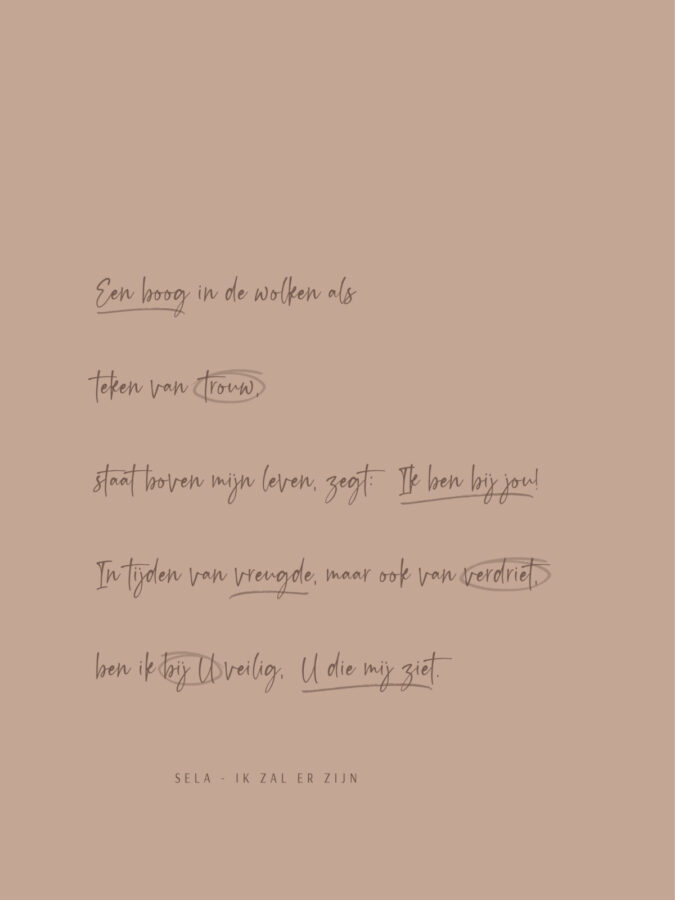 Een boog in de wolken als
teken van trouw,
staat boven mijn leven, zegt: Ik ben bij jou!
In tijden van vreugde, maar ook van verdriet,
ben ik bij U veilig, U die mij ziet.
SELA - IK ZAL ER ZIJN